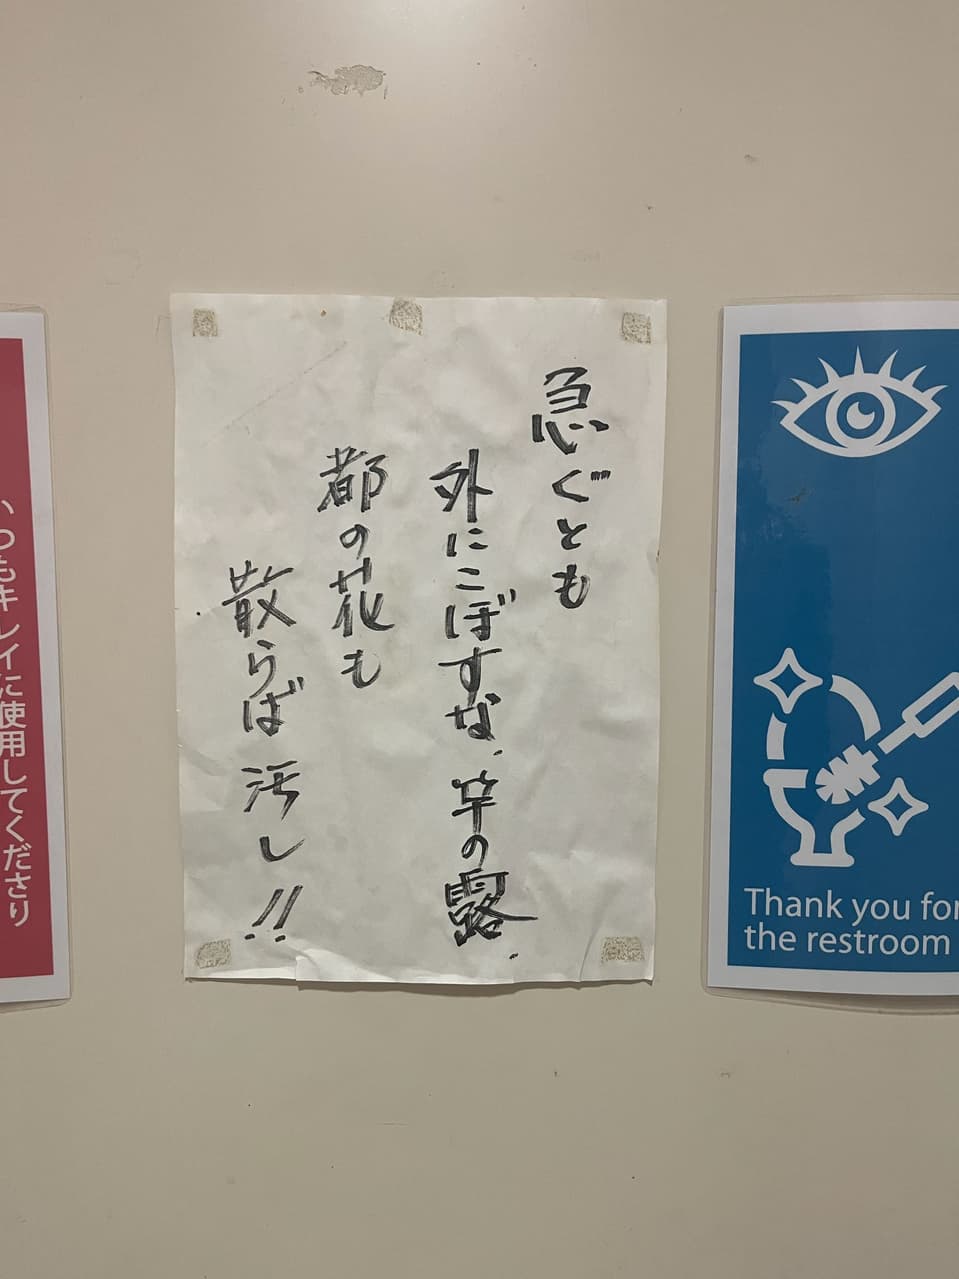 急ぐとも
外にこぼすな、竿の露.
都の花も
散らば 汚し!!
いつもキレイに使用してくださり
Thank you for
the restroom